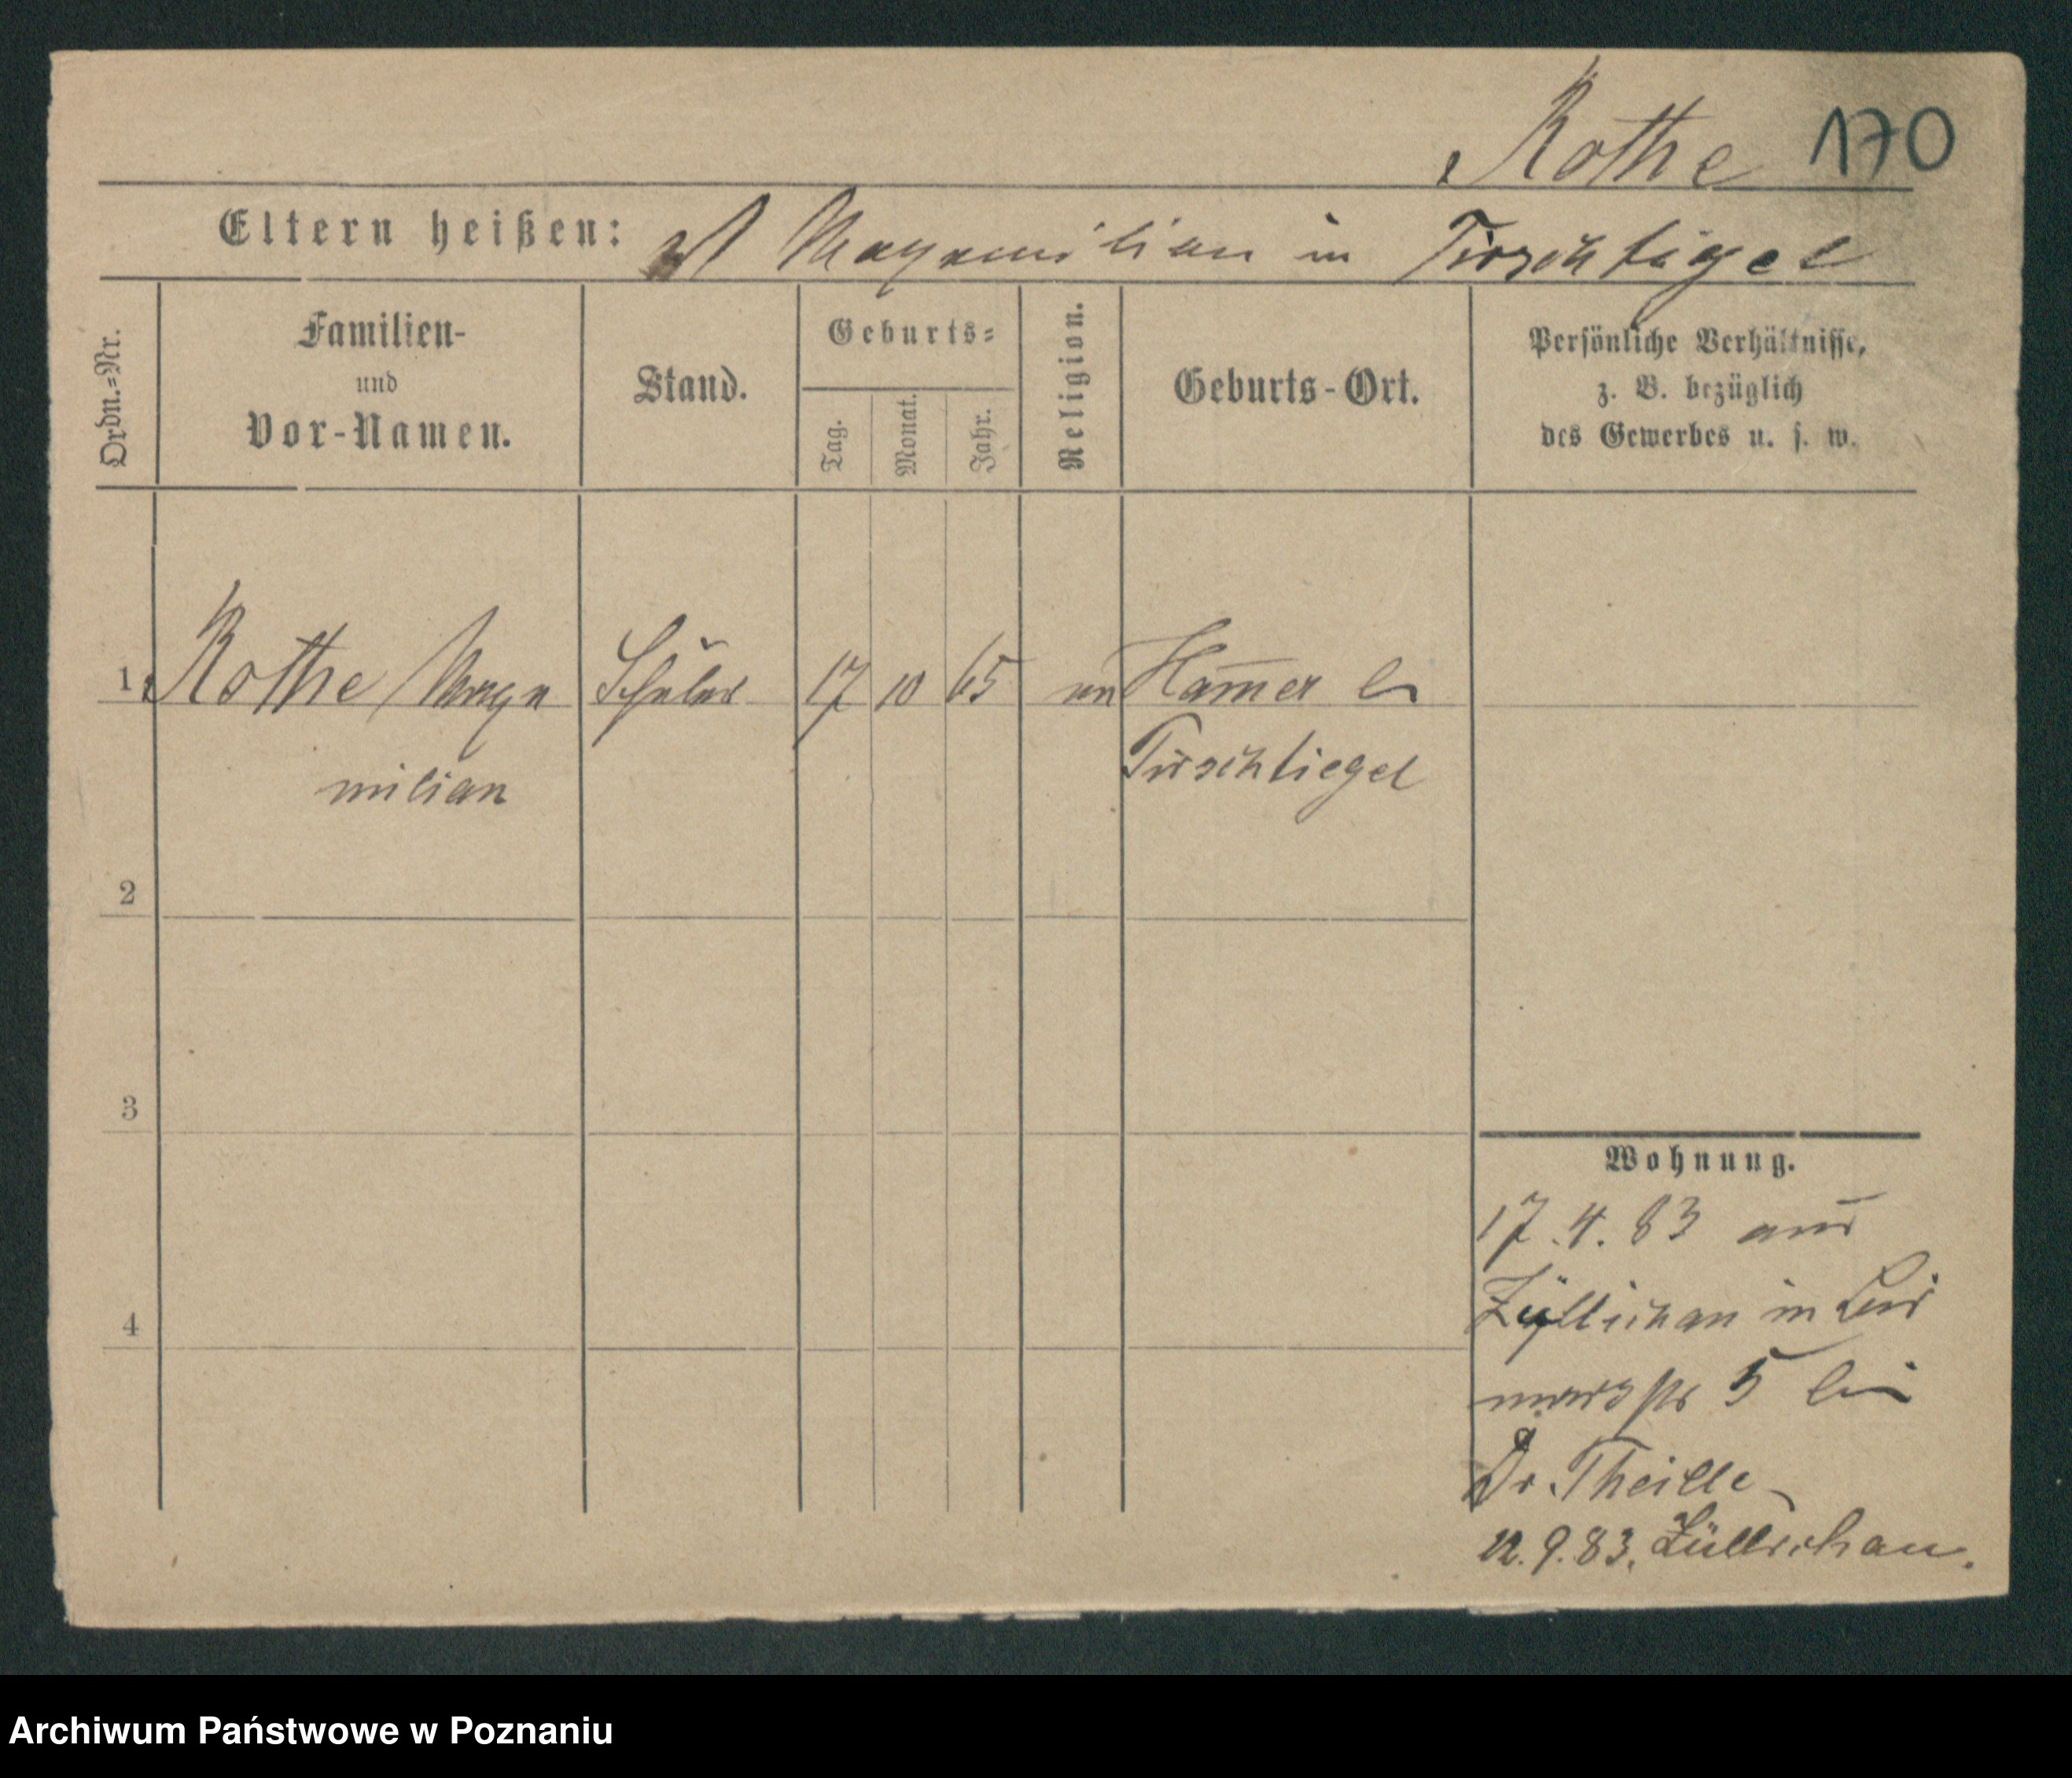 Rothe 170
Eltern heißen: Maxymilian in Tirschtigel
Ordn.=Nr.
Familien-
und
Vor-Namen.
Stand.
Geburts=
Tag.
Monat.
Jahr.
Religion.
Geburts-Ort.
Persönliche Verhältnisse,
z. B. bezüglich
des Gewerbes u. s. w.
1 Rothe Maxy Schüler 17 10 65 Ham̅er b
milian Tirschtiegel
2
3
4
Wohnung.
17.4.83 aus
Züllichau in Bis
marckstr 5 bei
Dr. Theille
22.9.83. Züllichau.
Archiwum Państwowe w Poznaniu